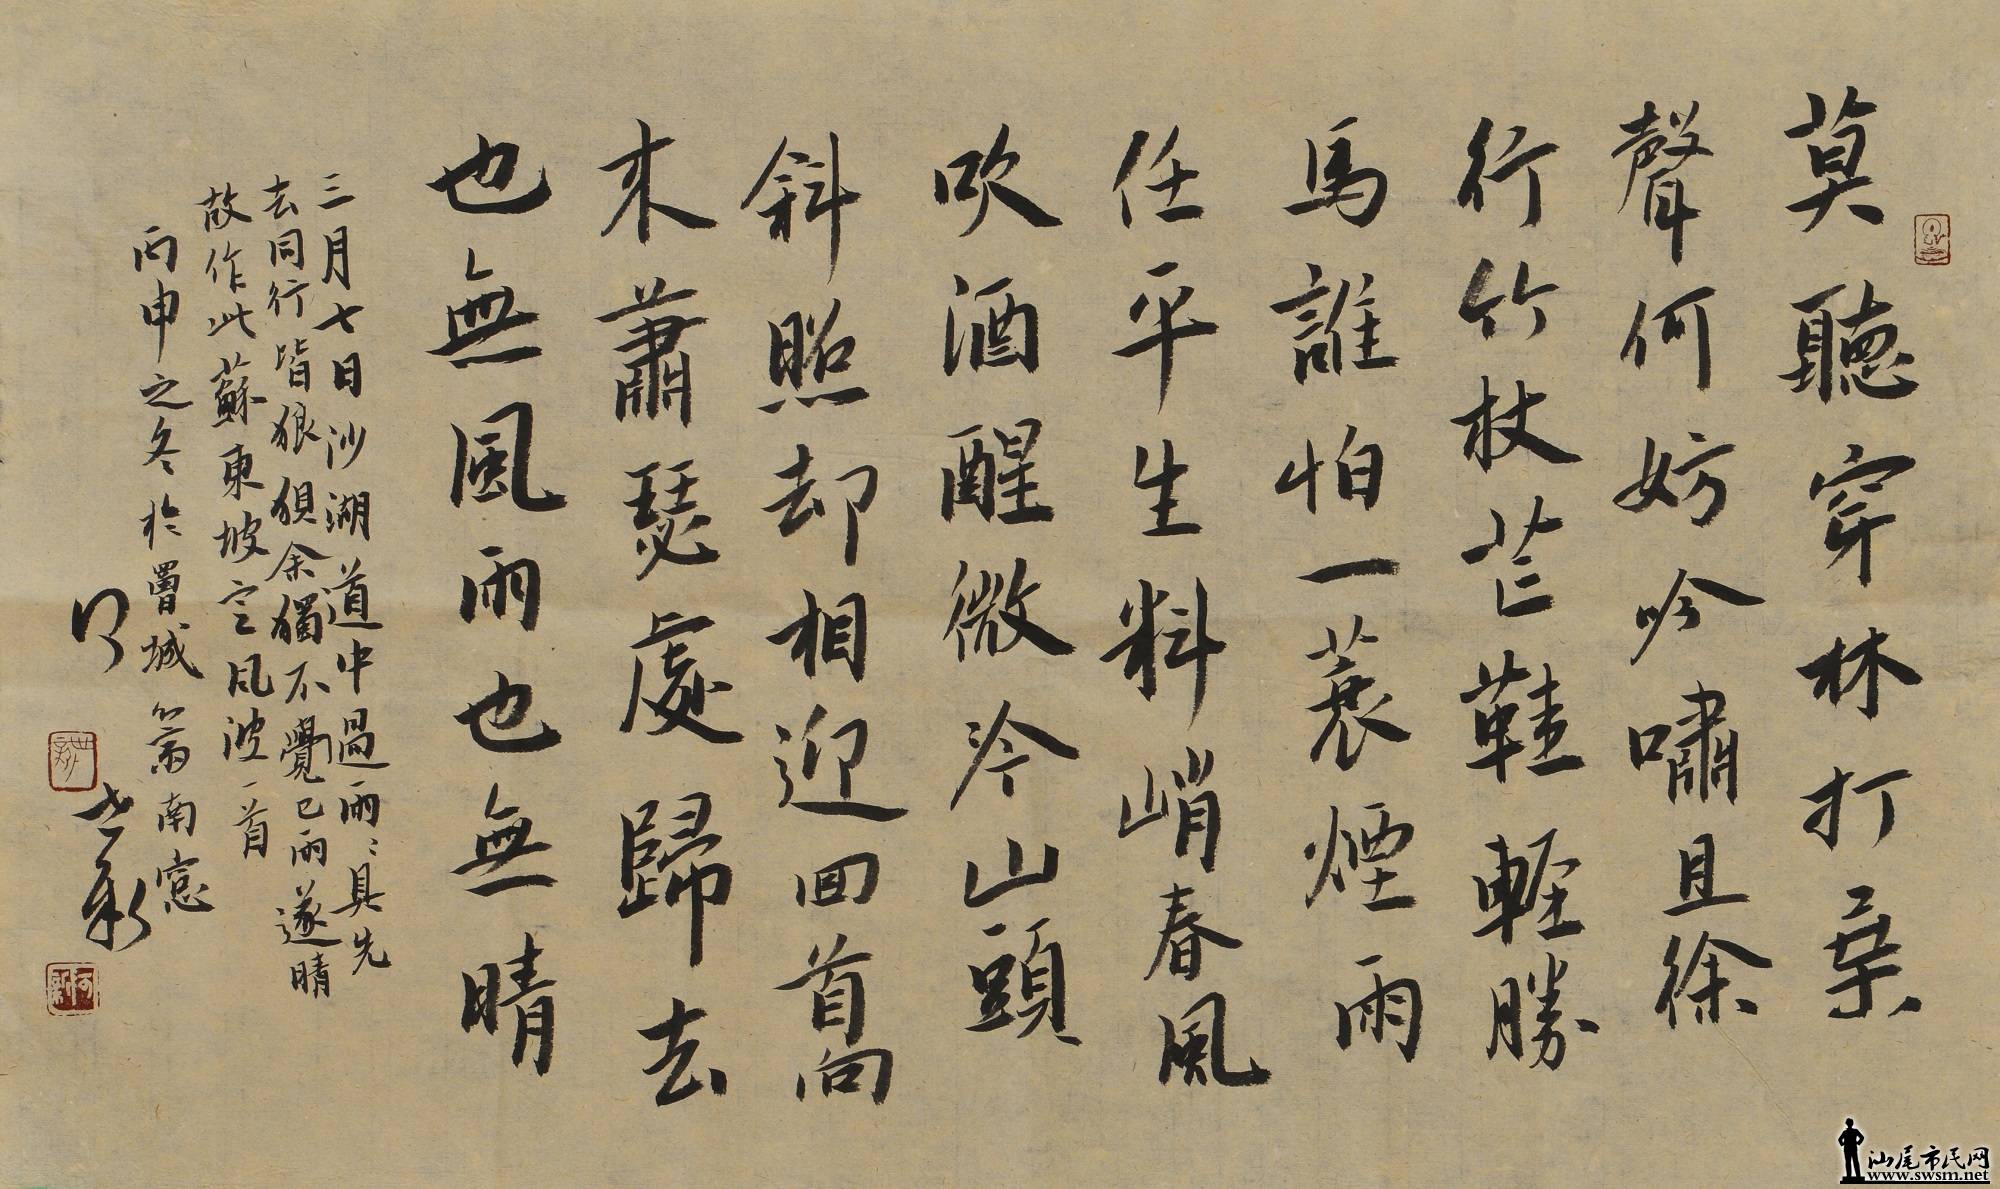 莫聽穿林打葉
聲何妨吟嘯且徐
行竹杖芒鞋輕勝
馬誰怕一蓑煙雨
任平生料峭春風
吹酒醒微冷山頭
斜照却相迎回首向
来蕭瑟處歸去
也無風雨也無晴
三月七日沙湖道中遇雨〻具先
去同行皆狼狽余獨不覺已雨遂晴
故作此蘇東坡定風波一首
丙申之冬於曾城南窓
汕尾市民网
www.swsm.net